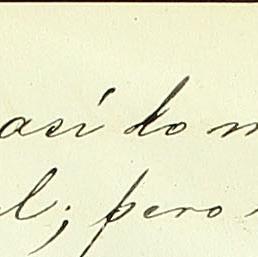 así lo m
l; pero